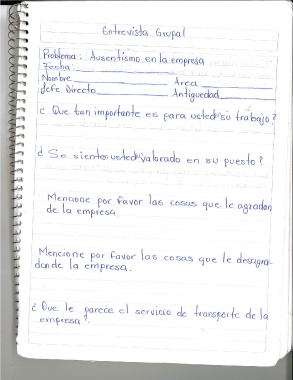 Entrevista Grupal
Problema: Ausentismo en la empresa
Fecha:
Nombre Area
Jefe Directo Antiguedad
¿ Que tan importante es para usted su trabajo?
¿ Se siente usted valorado en su puesto?
Mencione por favor las cosas que le agradan
de la empresa
Mencione por favor las cosas que le desagra-
dan de la empresa.
¿ Que le parece el servicio de transporte de la
empresa?